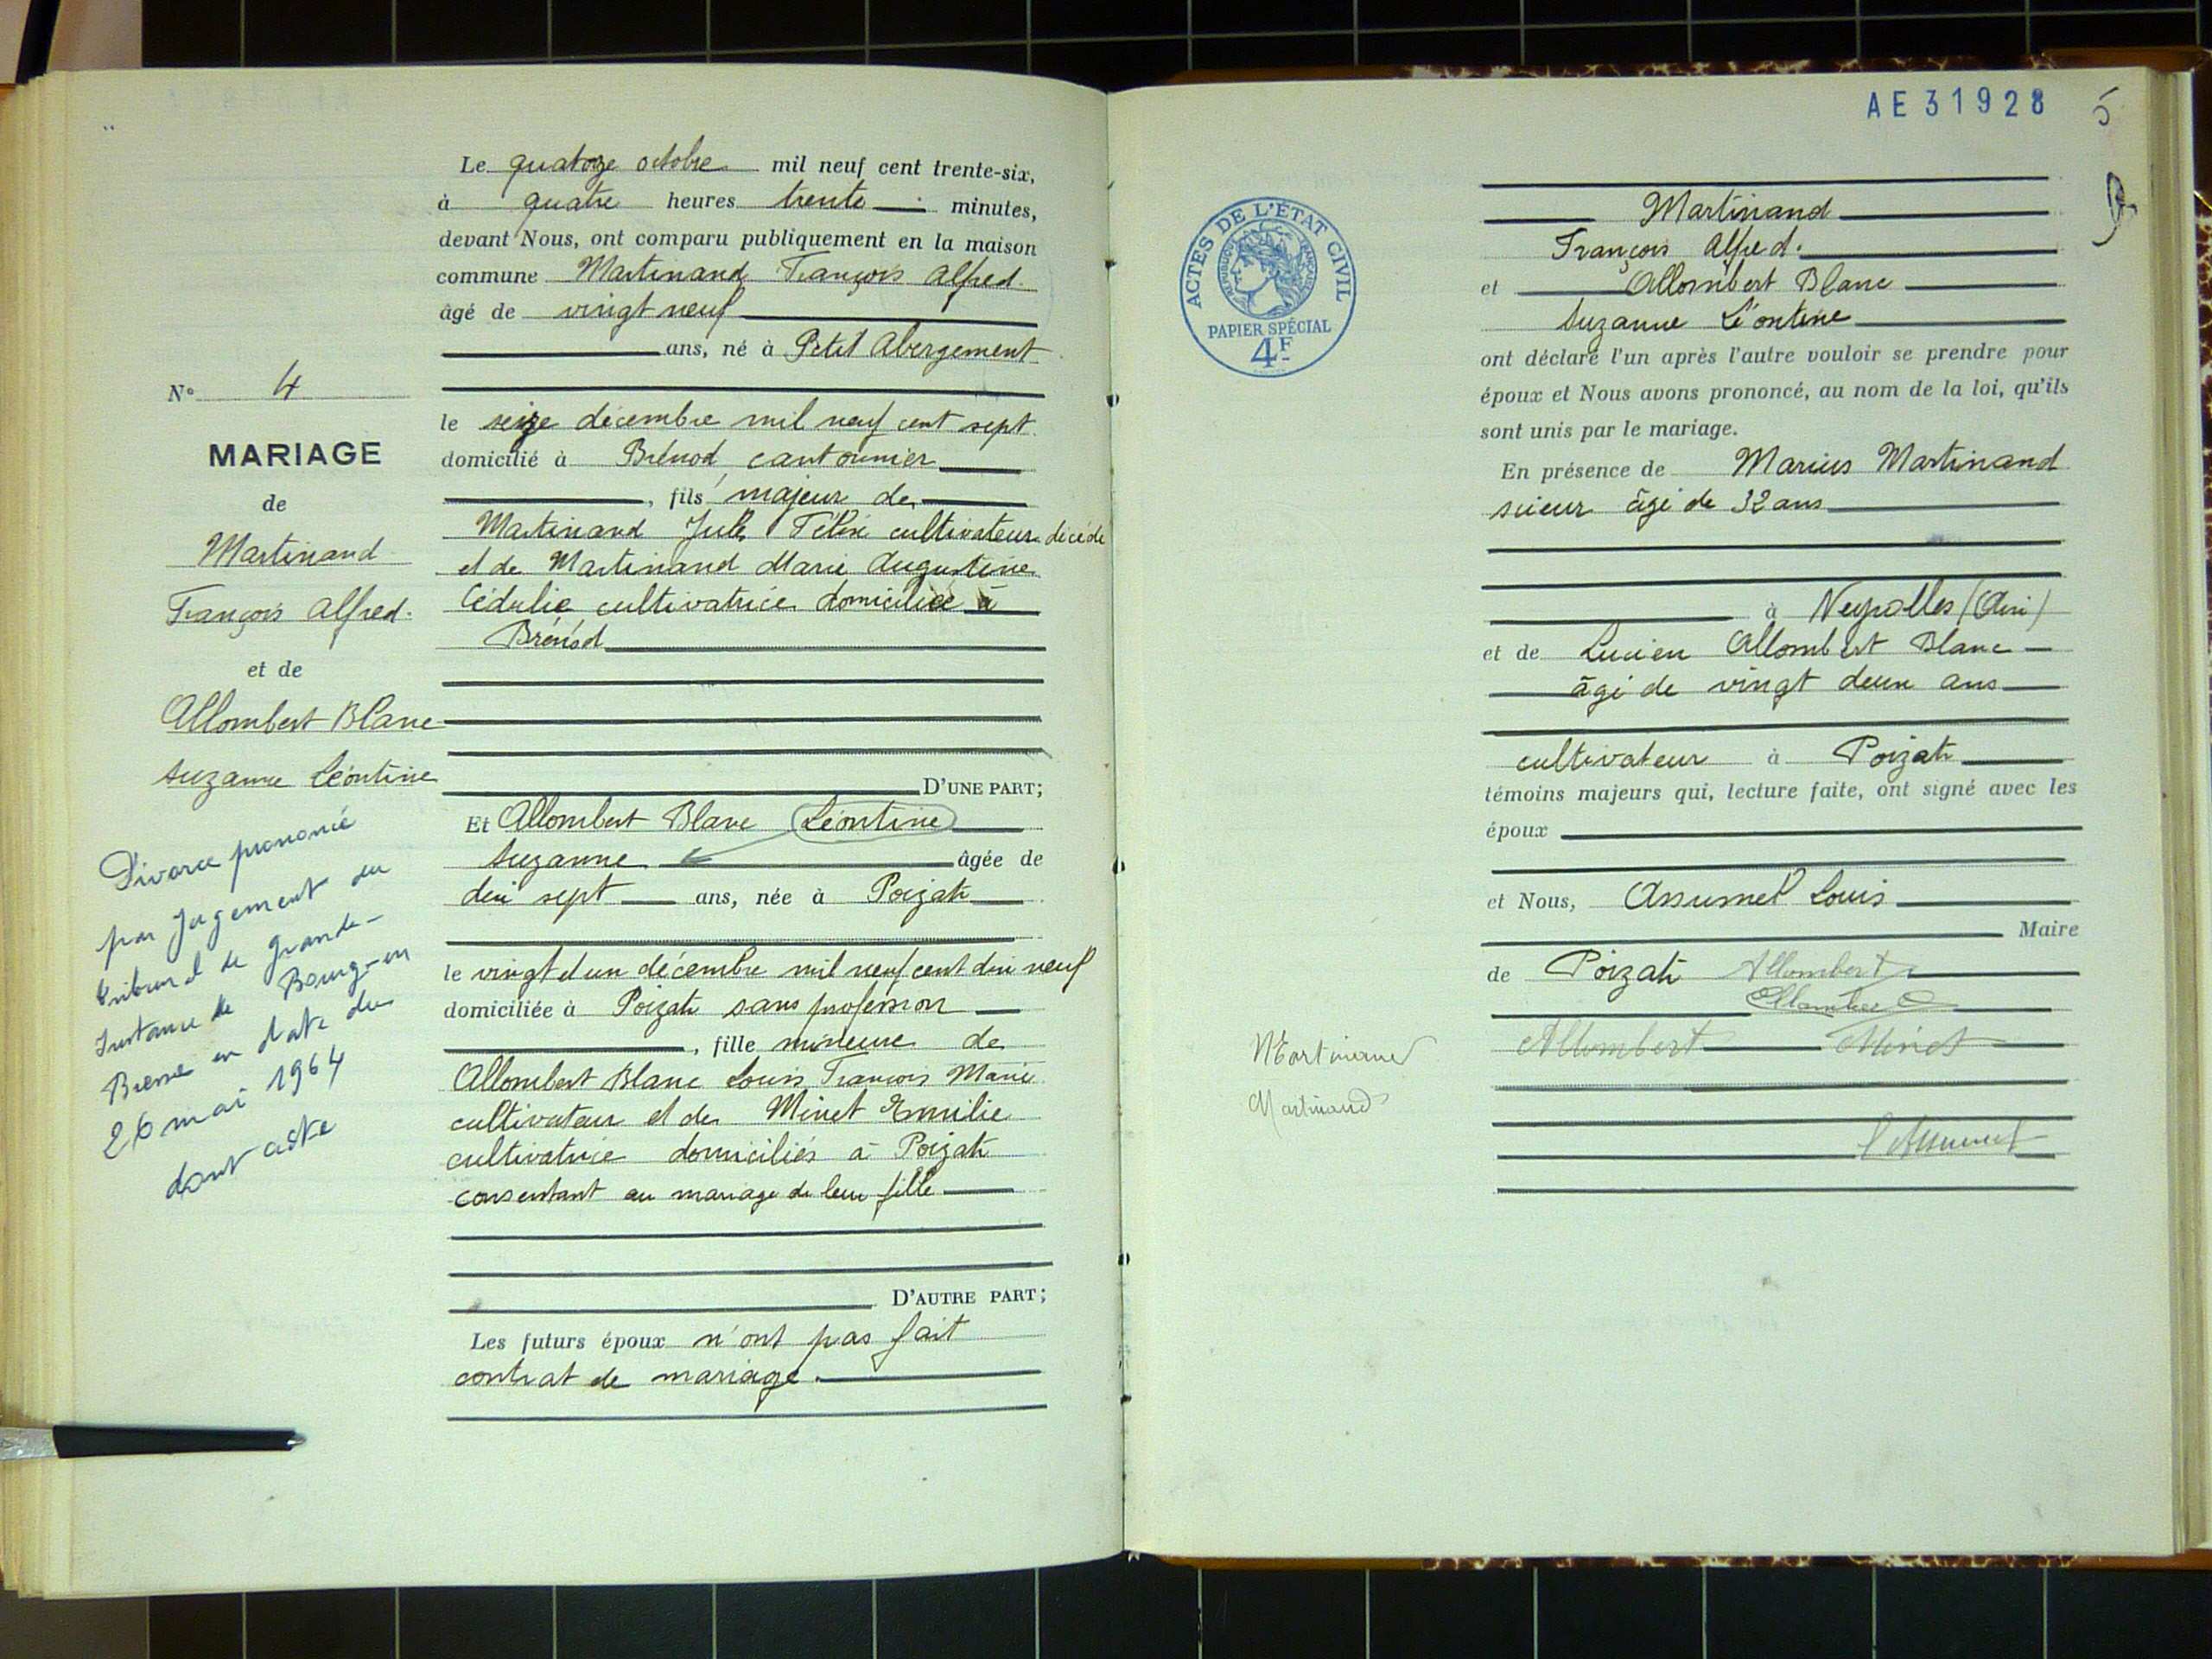 Le quatorze octobre mil neuf cent trente-six,
à quatre heures trente minutes,
devant Nous, ont comparu publiquement en la maison
commune Martinand François Alfred
âgé de vingt neuf
ans, né à Petit Abergement
le seize décembre mil neuf cent sept
domicilié à Brénod cantonnier
, fils majeur de
Martinand Jules Félix cultivateur décédé
et de Martinand Marie Augustine
Cédulie cultivatrice domiciliée à
Brénod
D'UNE PART;
Et Allombert Blanc Léontine
Suzanne âgée de
dix sept ans, née à Poizat
le vingt et un décembre mil neuf cent dix neuf
domiciliée à Poizat sans profession
, fille mineure de
Allombert Blanc Louis François Marie
cultivateur et de Minet Emilie
cultivatrice domiciliés à Poizat
consentant au mariage de leur fille
D'AUTRE PART;
Les futurs époux n'ont pas fait
contrat de mariage.
N° 4
MARIAGE
de
Martinand
François Alfred.
et de
Allombert Blanc
Suzanne Léontine
Divorce prononcé
par Jugement du
tribunal de grande-
Instance de Bourg-en
Bresse en date du
26 mai 1964
dont acte
AE 31928
5
ACTES DE L'ÉTAT CIVIL
RÉPUBLIQUE FRANÇAISE
PAPIER SPÉCIAL
4F
Martinand
François Alfred.
et Allombert Blanc
Suzanne Léontine
ont déclaré l'un après l'autre vouloir se prendre pour
époux et Nous avons prononcé, au nom de la loi, qu'ils
sont unis par le mariage.
En présence de Marius Martinand
scieur âgé de 32 ans
à Neyrolles (Ain)
et de Lucien Allombert Blanc
âgé de vingt deux ans
cultivateur à Poizat
témoins majeurs qui, lecture faite, ont signé avec les
époux
et Nous, Assumel Louis
Maire
de Poizat Allombert
Allombert Minet
Martinand
Martinand
L Assumel